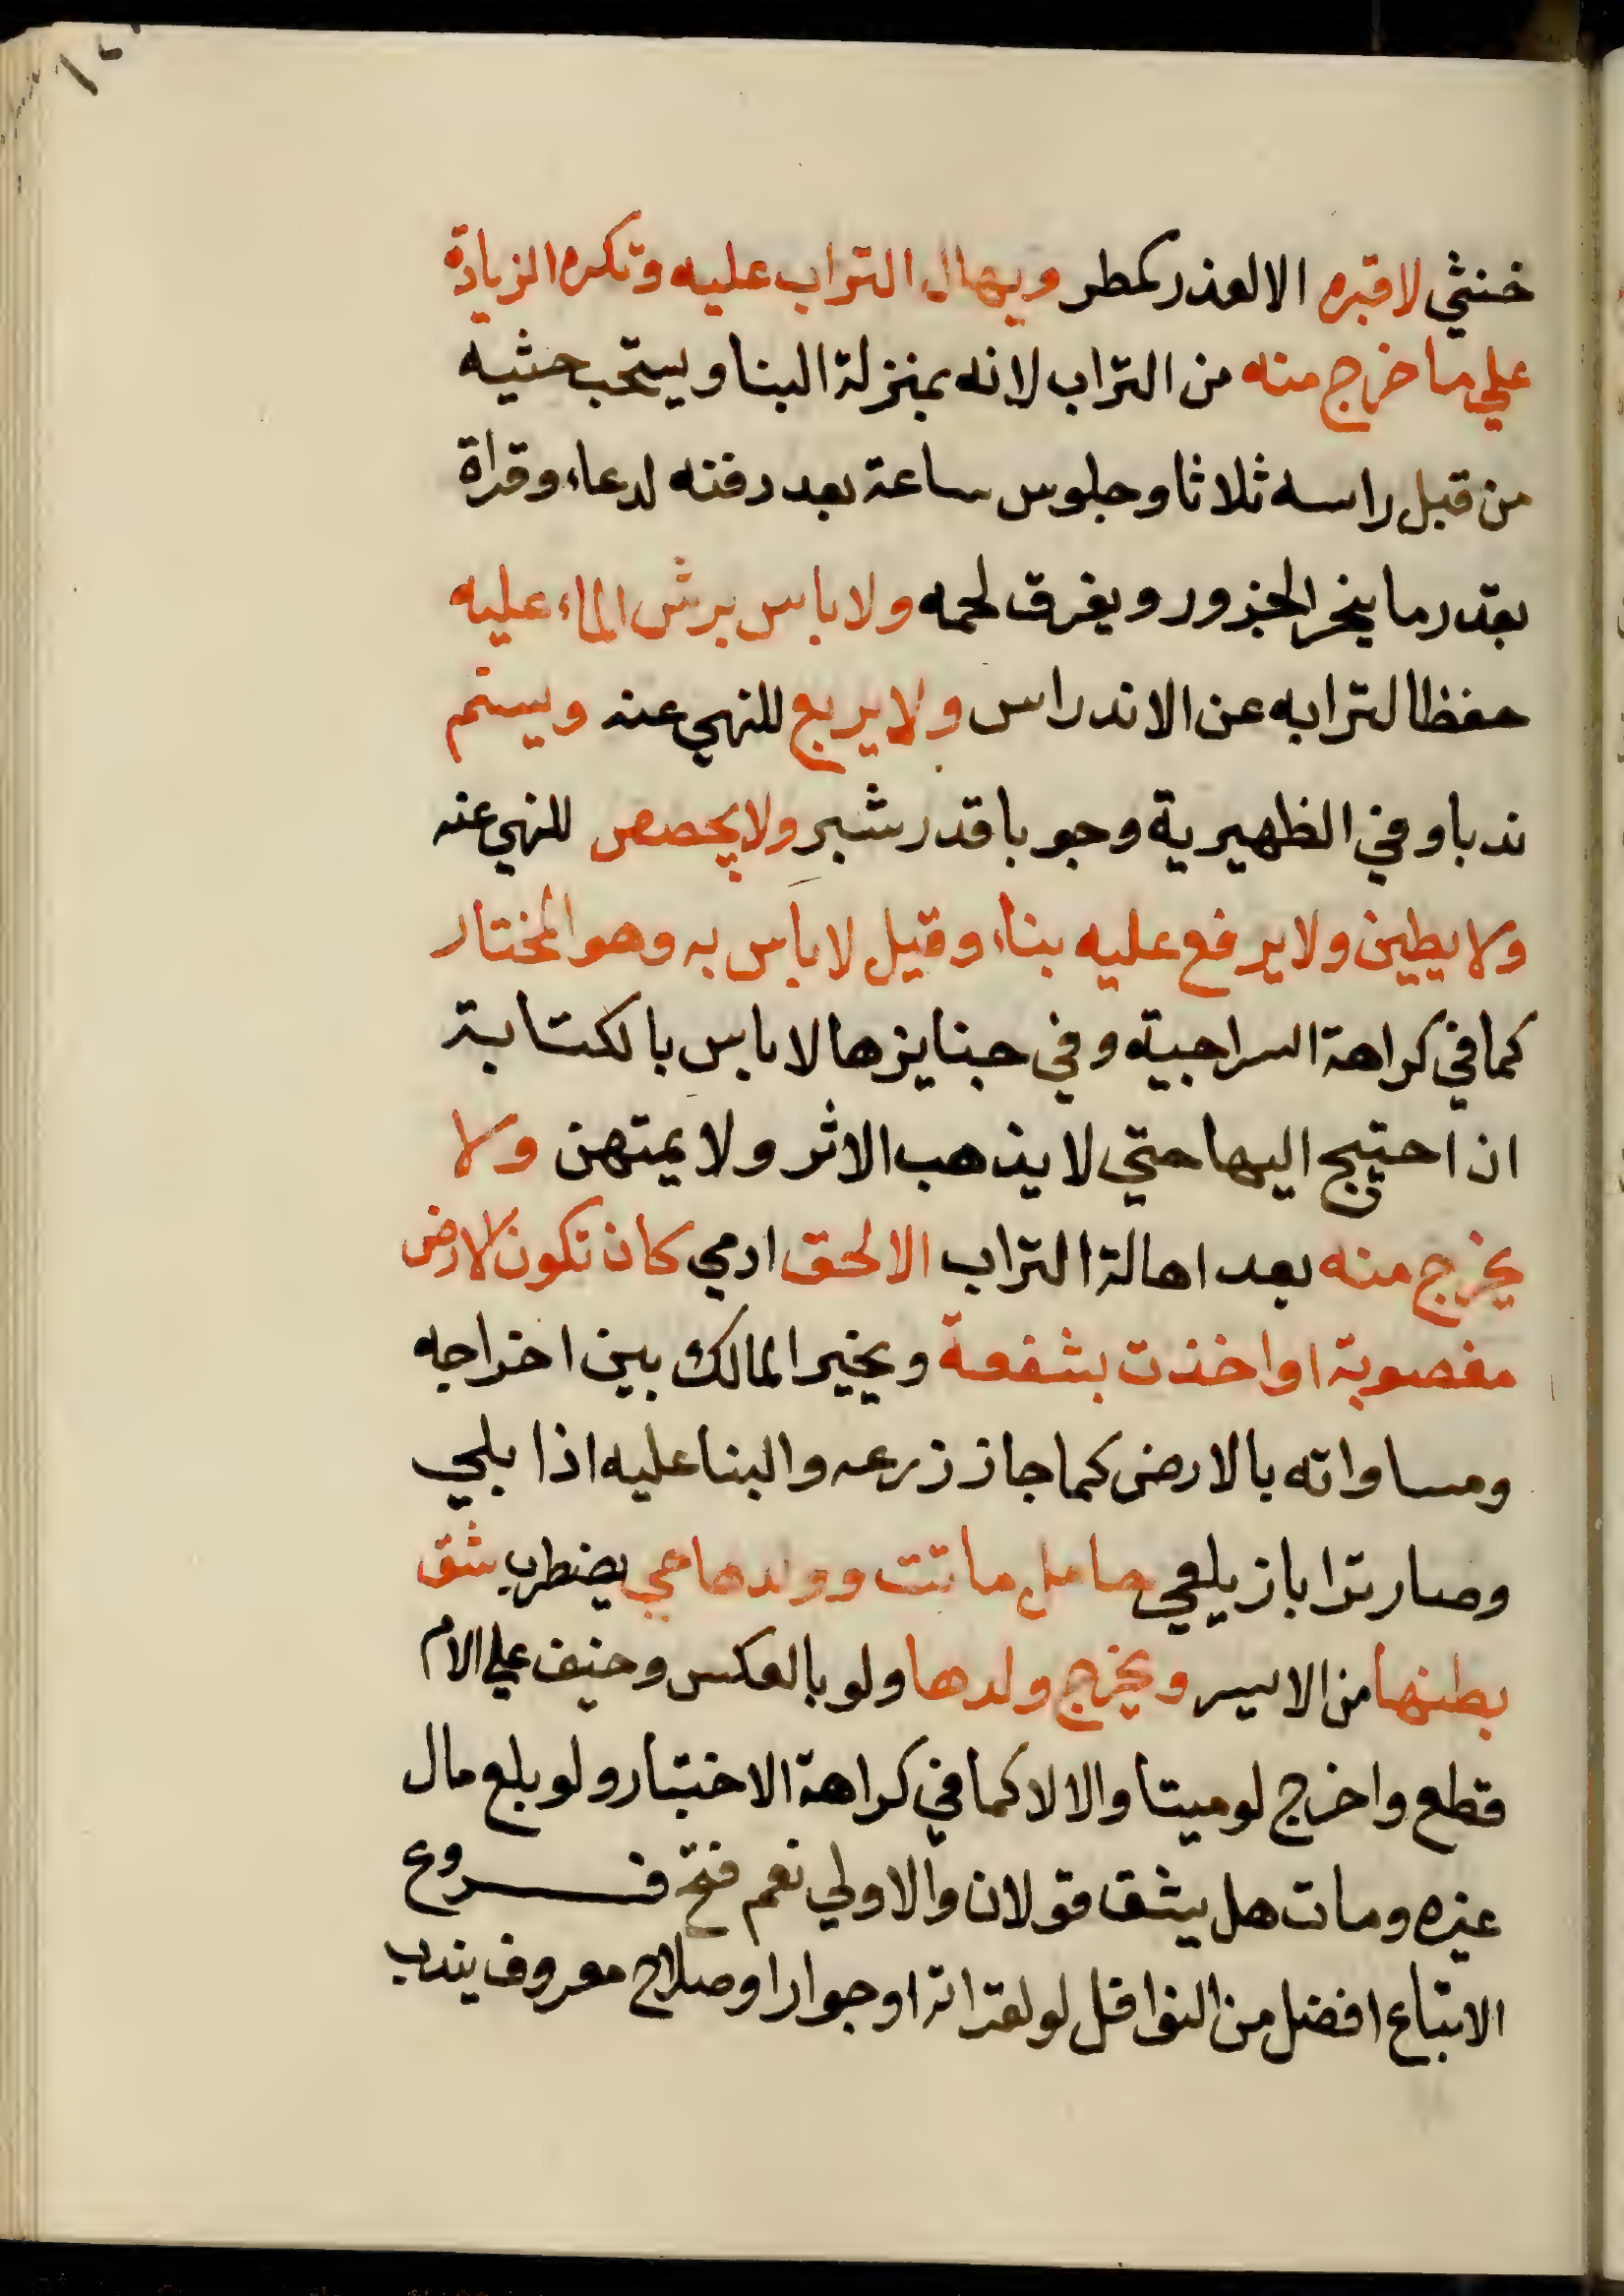 خنثي لا قبره الا لعذر كمطر ويهال التراب عليه وتكره الزيادة
علي ما خرج منه من التراب لانه بمنزلة البنا ويستحب حثيه
من قبل راسه ثلاثا وجلوس ساعة بعد دفنه لدعاء وقراة
بقدر ما ينحر الجزور ويفرق لحمه ولا باس برش الماء عليه
حفظا لترابه عن الاندراس ولا يربع للنهي عنه ويسنم
ندبا وفي الظهيرية وجوبا قدر شبر ولا يجصص للنهي عنه
ولا يطين ولا يرفع عليه بناء وقيل لا باس به وهو المختار
كما في كراهة السراجية وفي جنايزها لا باس بالكتابة
ان احتيج اليها حتي لا يذهب الاثر ولا يمتهن ولا
يخرج منه بعد اهالة التراب الا لحق ادمي كان تكون الارض
مغصوبة او اخذت بشفعة ويخير المالك بين اخراجه
ومساواته بالارض كما جاز زرعه والبنا عليه اذا بلي
وصار ترابا زيلعي حامل ماتت وولدها حي يضطرب شق
بطنها من الايسر ويخرج ولدها ولو بالعكس وخيف علي الام
قطع واخرج لو ميتا والا لا كما في كراهة الاختيار ولو بلع مال
غيره ومات هل يشق قولان والاولي نعم فتح فروع
الاتباع افضل من النوافل لو لقرابة او جوار او صلاح معروف يندب